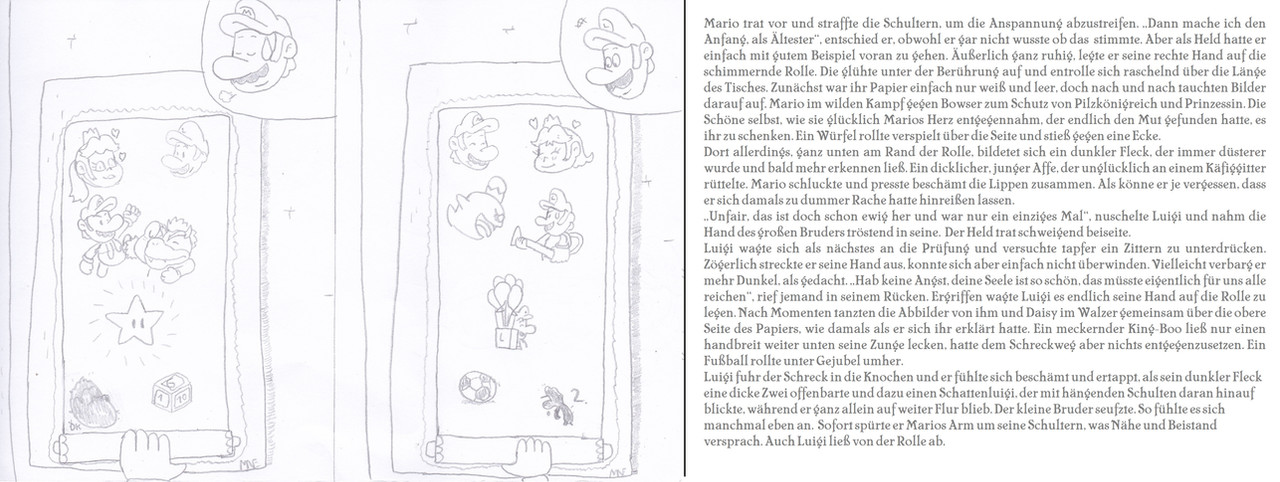 5
1 10
DK
L
2.
Mario trat vor und straffte die Schultern, um die Anspannung abzustreifen. „Dann mache ich den
Anfang, als Ältester“, entschied er, obwohl er gar nicht wusste ob das stimmte. Aber als Held hatte er
einfach mit gutem Beispiel voran zu gehen. Äußerlich ganz ruhig, legte er seine rechte Hand auf die
schimmernde Rolle. Die glühte unter der Berührung auf und entrolle sich raschelnd über die Länge
des Tisches. Zunächst war ihr Papier einfach nur weiß und leer, doch nach und nach tauchten Bilder
darauf auf. Mario im wilden Kampf gegen Bowser zum Schutz von Pilzkönigreich und Prinzessin. Die
Schöne selbst, wie sie glücklich Marios Herz entgegennahm, der endlich den Mut gefunden hatte, es
ihr zu schenken. Ein Würfel rollte verspielt über die Seite und stieß gegen eine Ecke.
Dort allerdings, ganz unten am Rand der Rolle, bildetet sich ein dunkler Fleck, der immer düsterer
wurde und bald mehr erkennen ließ. Ein dicklicher, junger Affe, der unglücklich an einem Käfiggitter
rüttelte. Mario schluckte und presste beschämt die Lippen zusammen. Als könne er je vergessen, dass
er sich damals zu dummer Rache hatte hinreißen lassen.
„Unfair, das ist doch schon ewig her und war nur ein einziges Mal“, nuschelte Luigi und nahm die
Hand des großen Bruders tröstend in seine. Der Held trat schweigend beiseite.
Luigi wagte sich als nächstes an die Prüfung und versuchte tapfer ein Zittern zu unterdrücken.
Zögerlich streckte er seine Hand aus, konnte sich aber einfach nicht überwinden. Vielleicht verbarg er
mehr Dunkel, als gedacht. „Hab keine Angst, deine Seele ist so schön, das müsste eigentlich für uns alle
reichen“, rief jemand in seinem Rücken. Ergriffen wagte Luigi es endlich seine Hand auf die Rolle zu
legen. Nach Momenten tanzten die Abbilder von ihm und Daisy im Walzer gemeinsam über die obere
Seite des Papiers, wie damals als er sich ihr erklärt hatte. Ein meckernder King-Boo ließ nur einen
handbreit weiter unten seine Zunge lecken, hatte dem Schreckweg aber nichts entgegenzusetzen. Ein
Fußball rollte unter Gejubel umher.
Luigi fuhr der Schreck in die Knochen und er fühlte sich beschämt und ertappt, als sein dunkler Fleck
eine dicke Zwei offenbarte und dazu einen Schattenluigi, der mit hängenden Schulten daran hinauf
blickte, während er ganz allein auf weiter Flur blieb. Der kleine Bruder seufzte. So fühlte es sich
manchmal eben an. Sofort spürte er Marios Arm um seine Schultern, was Nähe und Beistand
versprach. Auch Luigi ließ von der Rolle ab.